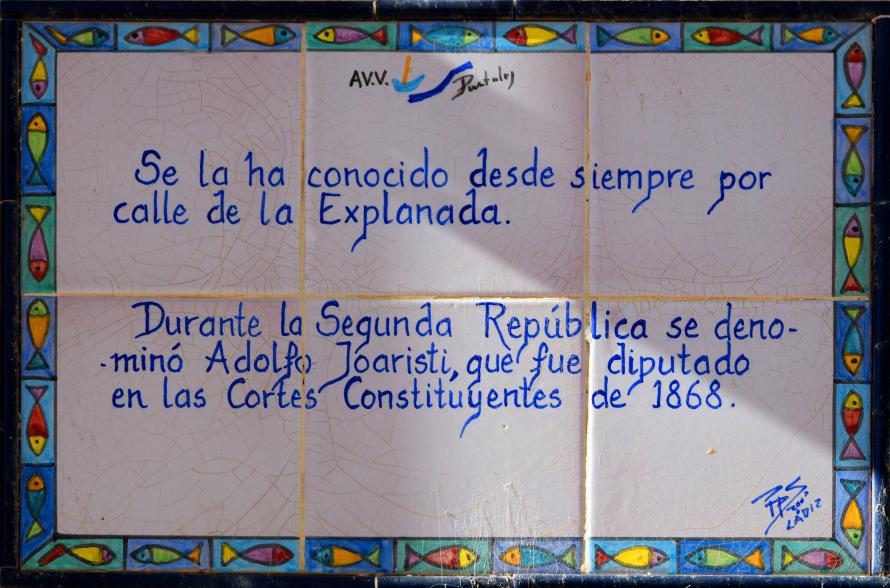 AV.V. Puntales
Se la ha conocido desde siempre por
calle de la Explanada.
Durante la Segunda República se deno-
minó Adolfo Jóaristi, que fue diputado
en las Cortes Constitúyentes de 1868.
CÁDIZ